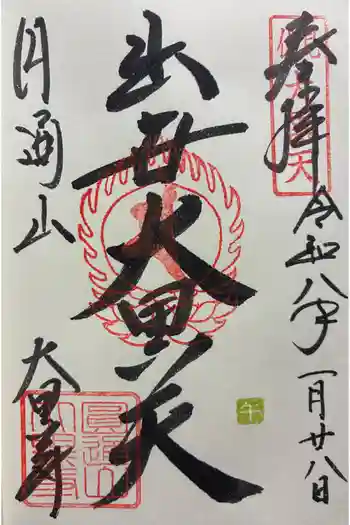 奉拝
令和八年
一月廿八日
出世大黒天
円通山
大黒寺
午
圓通山